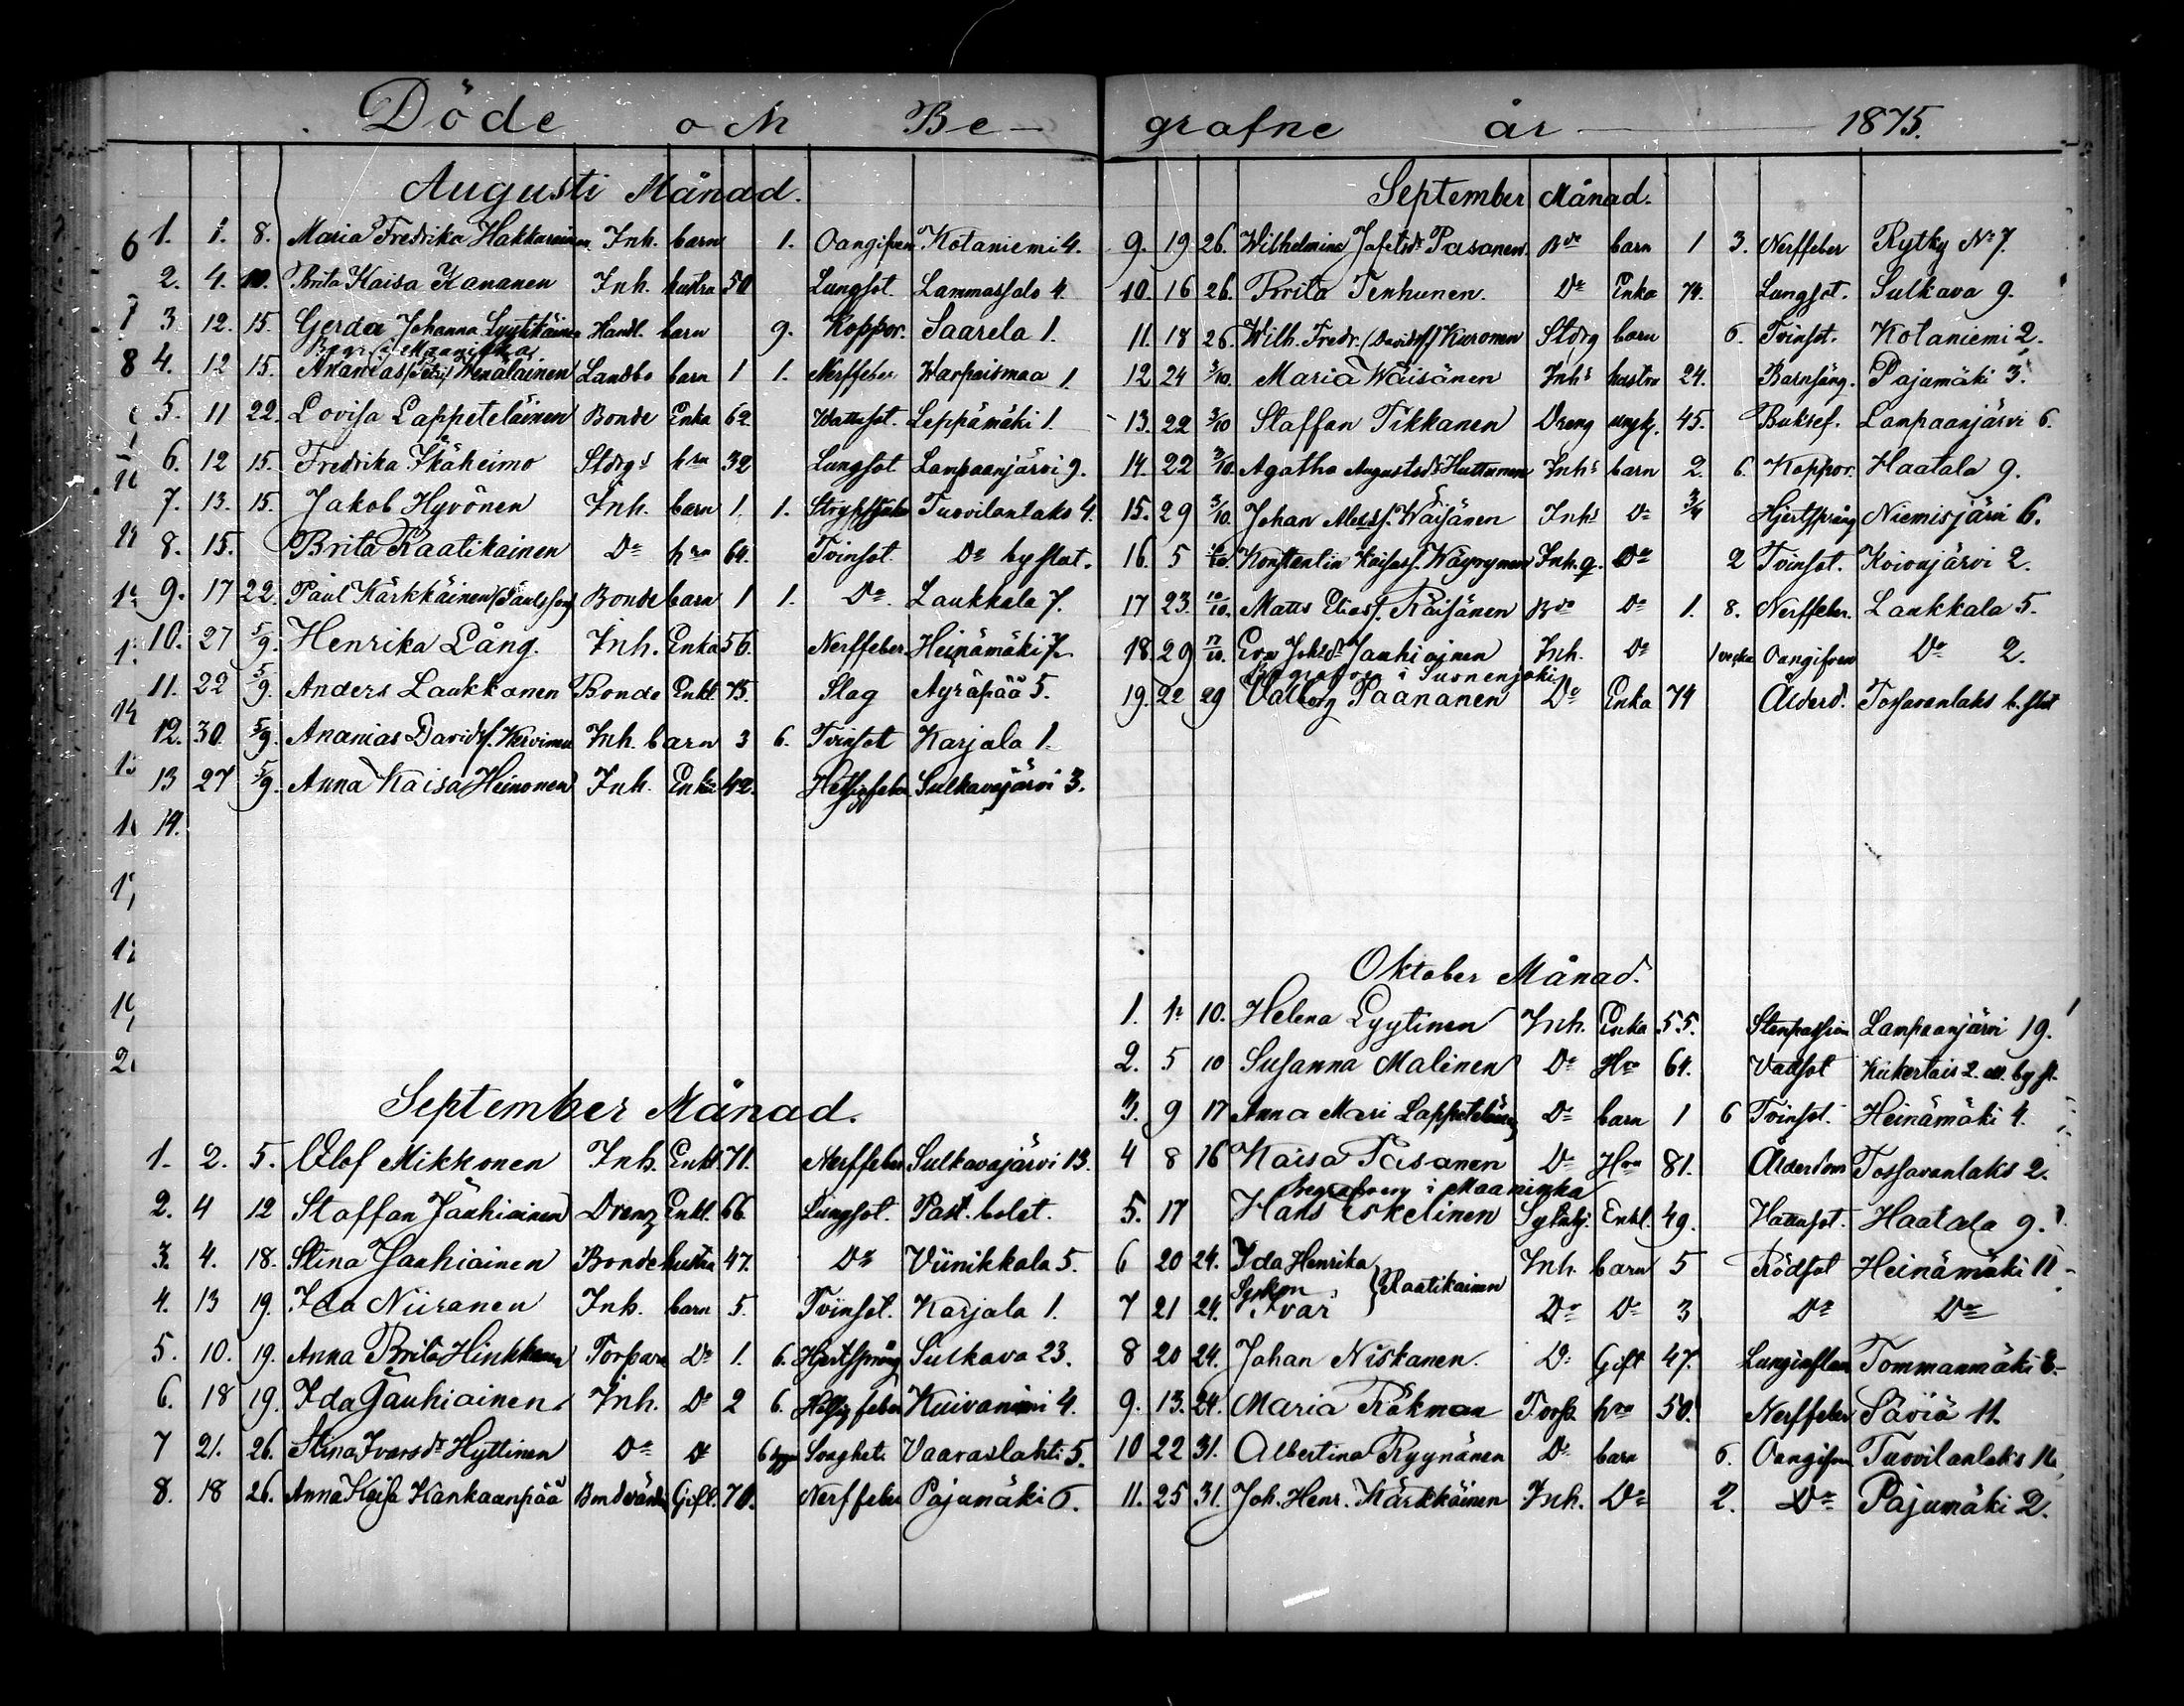 Döde och Be-
Augusti Månad.
1. 1. 8. Maria Fredrika Hakkarainen Inh. barn 1. Oangifven Kotaniemi 4.
2. 4. 10. Brita Kaisa Kananen Inh. hustru 50 Lungsot. Lammassalo 4.
3 12. 15. Gerda Johanna Lyytikäinen Handl. barn 9. Koppor. Saarela 1.
4. 12 15. Ananias Wenäläinen Landbo barn 1 1. Nerffeber Warpaismaa 1.
5. 11 22. Lovisa Lappeteläinen Bonde Enka 62 Wattusot. Leppämäki 1.
6. 12 15. Fredrika Ikäheimo Stdrgs hru 32 Lungsot Lampaanjärvi 9.
7. 13. 15. Jakob Hyvönen Inh. barn 1. 1. Strypsjuka Tuovilanlaks 4.
8. 15. Brita Raatikainen Do hru 64. Tvinsot. Do by flat.
9. 17 22. Paul Kärkkäinen (Paulsson) Bonde barn 1 1. Do. Laukkala 7.
10. 27 5/9. Henrika Lång. Inh. Enka 56. Nerffeber. Heinämäki 7.
11. 22 5/9. Anders Laukkanen Bonde Enkl. 75. Slag Ayräpää 5.
12. 30. 5/9. Ananias Davidsf. Inh. barn 3 6. Tvinsot Karjala 1.
13 27 5/9. Anna Kaisa Heinonen Inh. Enka 42. Hetsigfeber Sulkavajärvi 3.
14.
September Månad.
1. 2. 5. Olof Mikkonen Inh. Enkl 71. Nerffeber Sulkavajärvi 13.
2. 4 12 Staffan Jauhiainen Dreng Enkl. 66 Lungsot. Past. bolet.
3. 4. 18. Stina Jauhiainen Bonde hustru 47. Do Viinikkala 5.
4. 13 19. Ida Niiranen Inh. barn 5. Tvinsot. Karjala 1.
5. 10. 19. Anna Brita Hinkkanen Torpare Do 1. 6. Hjertsprång Sulkava 23.
6. 18 19. Ida Jauhiainen Inh. Do 2 6. Hetsig feber Kuivaniemi 4.
7 21. 26. Stina Ivarsdr Hyttinen Do Do 6 dygn Svaghet. Vaaraslahti 5.
8. 18 26. Anna Kaisa Kankaanpää Bondvärdin Gift. 70. Nerffeber Pajumäki 6.
grafne år 1875.
September Månad.
9. 19 26. Wilhelmina Jafetsdr Pasanen. Bde barn 1 3. Nerffeber Rytky No 7.
10. 16 26. Brita Tenhunen. Do Enka 74. Lungsot. Sulkava 9.
11. 18 26. Wilh. Fredr. (Davidsf) Kuronen Stdrg barn 6. Tvinsot. Kotaniemi 2.
12 24 3/10. Maria Wäisänen Inhs hustru 24. Barnsäng. Pajumäki 3.
13. 22 3/10 Staffan Tikkanen Dreng ungk. 45. Buksef. Lampaanjärvi 6.
14. 22 3/10. Agatha Augustsdr Huttunen Inhs barn 2. 6. Koppor. Haatala 9.
15. 29 3/10. Johan Wäisänen Inhs Do 3/4 Hjertsprång Niemisjärvi 6.
16. 5 10/10. Konstantin Kaisasf. Wäyrynen Inh. q. Do 2 Tvinsot. Koivujärvi 2.
17 23. 10/10. Matts Eliasf. Räisänen Bde Do 1. 8. Nerffeber. Laukkala 5.
18. 29 17/10. Eva Johsdr Jauhiainen Inh. Do 1 vecka Oangifven Do 2.
Begrafven i Suonenjoki
19. 22 29 Valborg Paananen Do Enka 74 Ålderd. Tossavanlaks b. flat
Oktober Månad.
1. 1. 10. Helena Lyytinen Inh. Enka 55. Stenpassion Lampaanjärvi 19.
2. 5 10 Susanna Malinen Do Hru 64. Vadsot
3. 9 17 Anna Mari Lappeteläinen Do barn 1 6 Tvinsot. Heinämäki 4.
4 8 16 Kaisa Pasanen Do Hru 81. Ålderdom Tossavanlaks 2.
Begrafven i Maaninka
5. 17 Hans Eskelinen Sytnhj. Enkl. 49. Hattusot. Haatala 9.
6 20 24. Ida Henrika Inh. barn 5 Rödsot Heinämäki 11
Syskon } Raatikainen
7 21 24. Ivar Do Do 3 Do Do
8 20 24. Johan Niskanen. Do Gift 47. Lunginflam Tommanmäki 8.
9. 13. 24. Maria Räkman Torp. hru 50. Nerffeber Säviä 11.
10 22 31. Albertina Ryynänen Do barn 6. Oangifven Tuovilanlaks 16
11. 25 31. Joh. Henr. Kärkkäinen Inh. Do 2. Do Pajumäki 2.